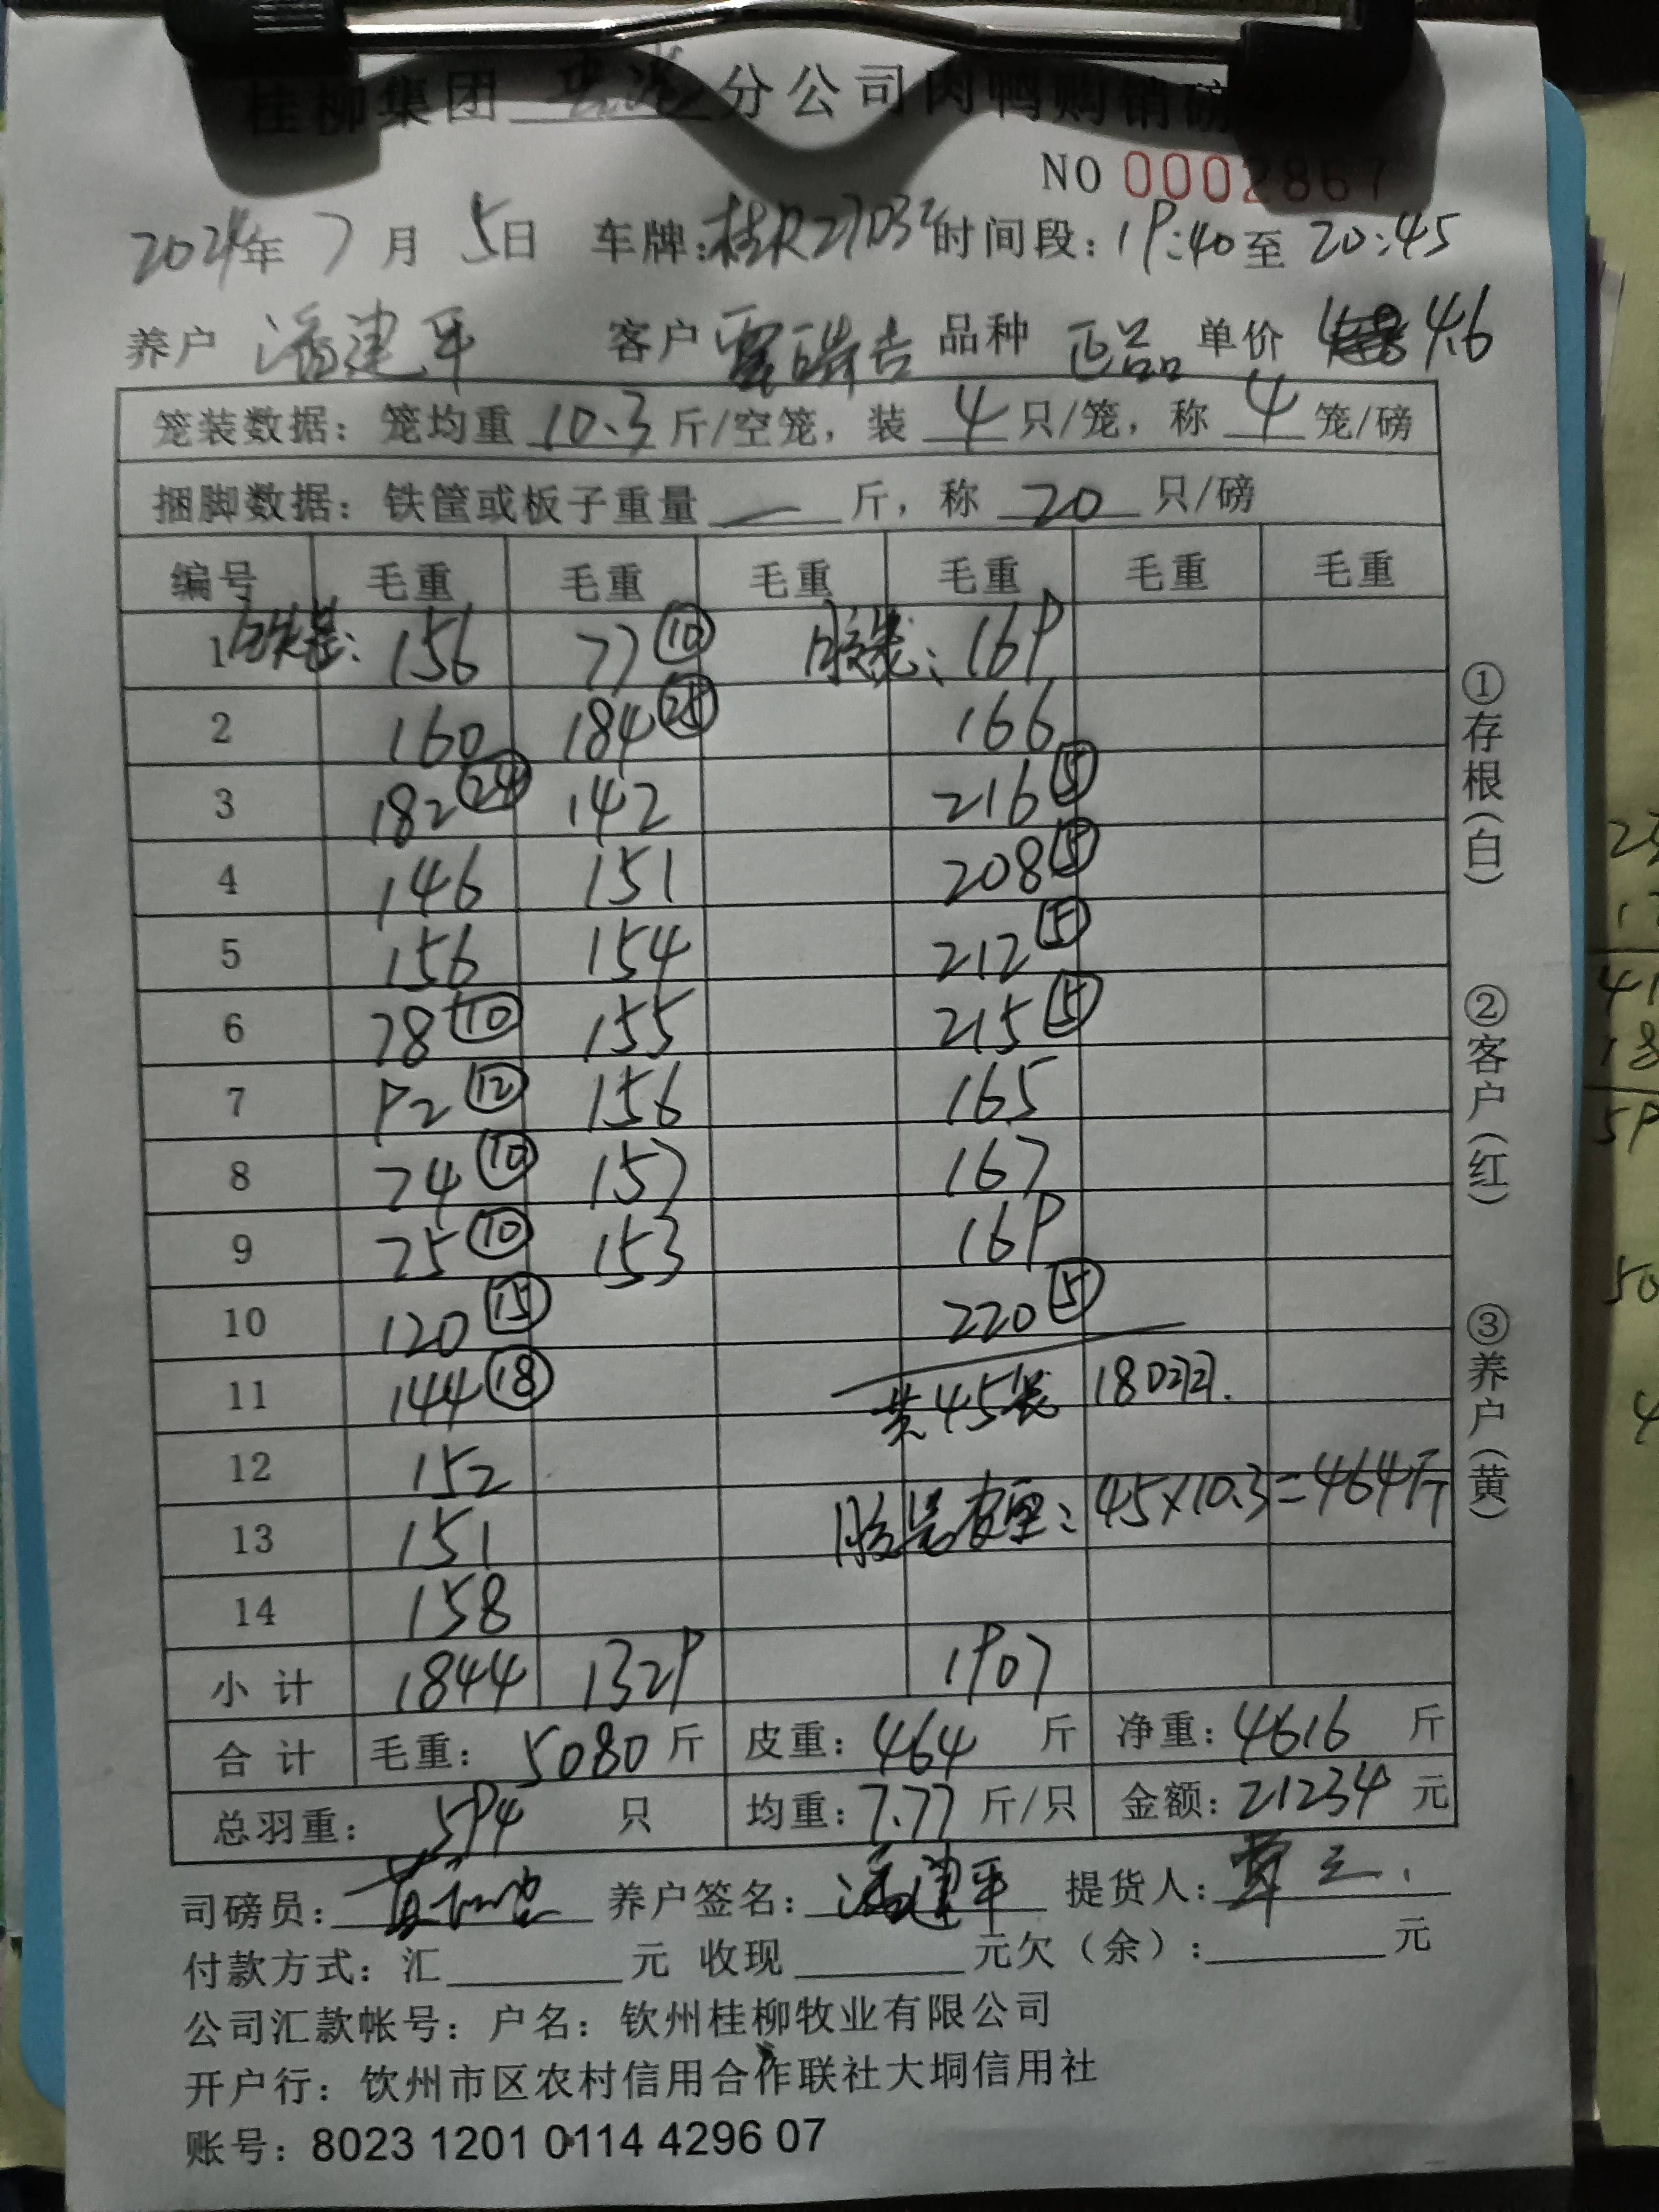 桂柳集团 分公司肉鸭购销磅
NO 0002867
2024年 7月 5日 车牌:桂R27032 时间段:19:40至20:45
养户 潘建平 客户 品种 正品 单价 4.6
笼装数据:笼均重 10.3 斤/空笼,装 4 只/笼,称 4 笼/磅
捆脚数据:铁筐或板子重量 — 斤,称 20 只/磅
编号 毛重 毛重 毛重 毛重 毛重 毛重
1 156 77⑩ 胶笼: 169
2 160 184㉕ 166
3 182㉔ 142 216⑤
4 146 151 208⑤
5 156 154 212⑤
6 78⑩ 155 215⑤
7 92⑫ 156 165
8 74⑩ 157 167
9 75⑩ 153 169
10 120⑮ 220⑤
11 144⑱ 共45笼 180只.
12 152
13 151 胶笼皮重:45×10.3=464斤
14 158
小计 1844 1329 1907
合计 毛重: 5080 斤 皮重: 464 斤 净重: 4616 斤
总羽重: 594 只 均重: 7.77 斤/只 金额: 21234 元
司磅员: 养户签名: 潘建平 提货人:
付款方式:汇 元 收现 元欠(余): 元
公司汇款帐号:户名:钦州桂柳牧业有限公司
开户行:钦州市区农村信用合作联社大垌信用社
账号:8023 1201 0114 4296 07
①存根(白) ②客户(红) ③养户(黄)